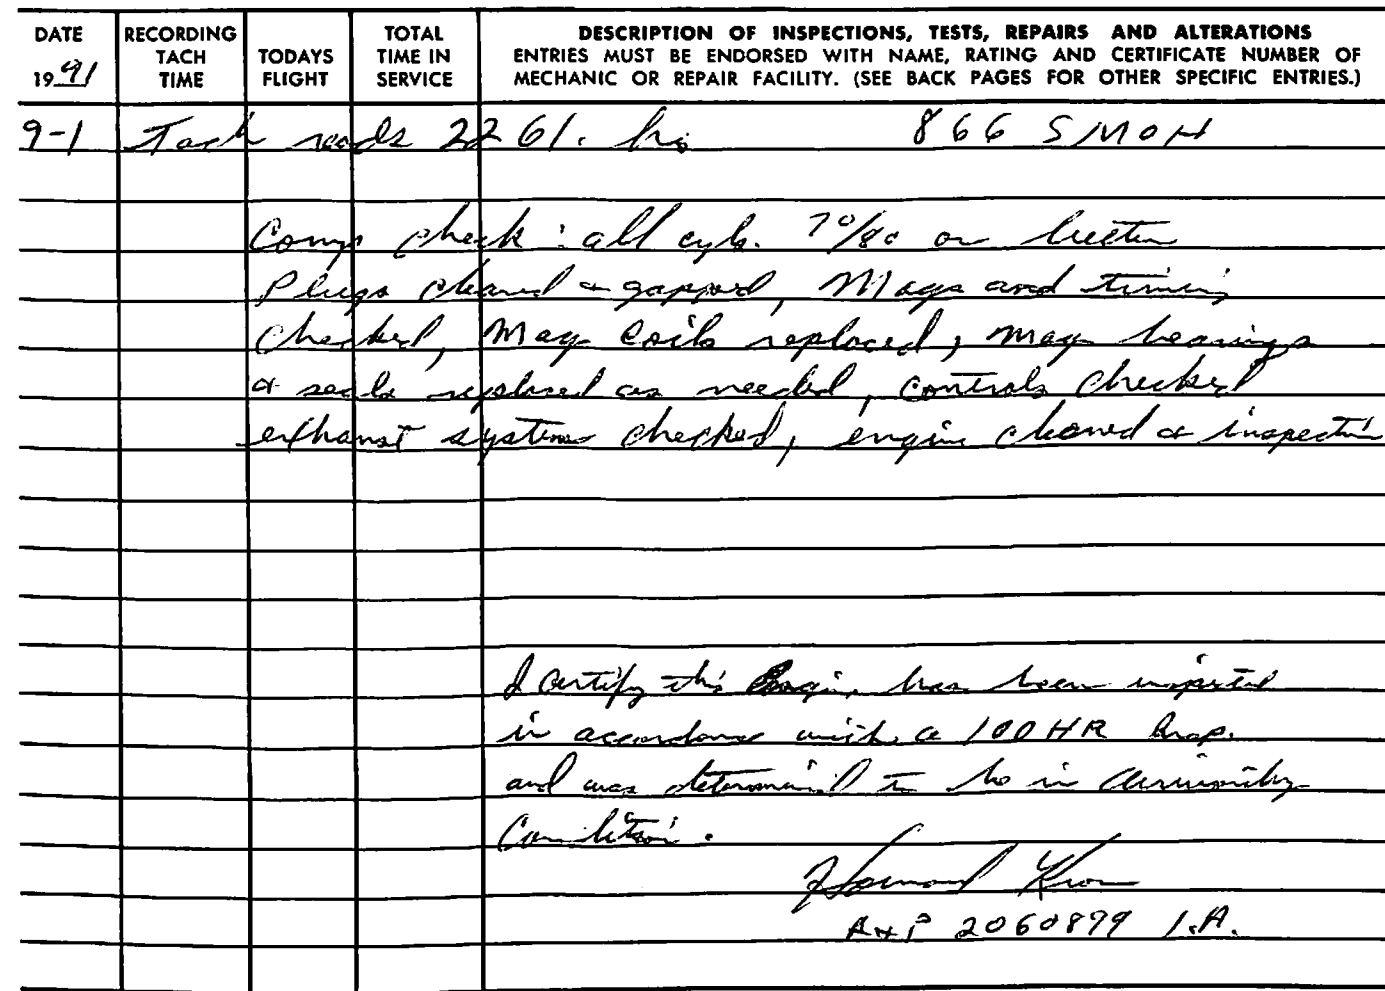 DATE RECORDING TACH TIME TODAYS FLIGHT TOTAL TIME IN SERVICE DESCRIPTION OF INSPECTIONS, TESTS, REPAIRS AND ALTERATIONS
ENTRIES MUST BE ENDORSED WITH NAME, RATING AND CERTIFICATE NUMBER OF
1991 MECHANIC OR REPAIR FACILITY. (SEE BACK PAGES FOR OTHER SPECIFIC ENTRIES.)
9-1 Tach reads 2261. hrs 866 SMOH
Comp check: all cyls. 70/80 or better
Plugs cleaned & gapped, Mags and timing
checked, Mag coils replaced, mag bearings
& seals replaced as needed, controls checked
exhaust system checked, engine cleaned & inspected
I certify this Engine has been inspected
in accordance with a 100 HR Insp.
and was determined to be in airworthy
Condition.
A&P 2060899 I.A.